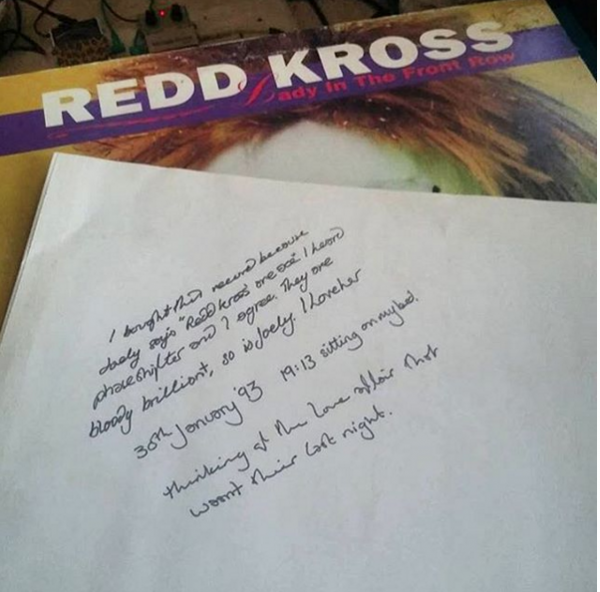 REDD KROSS
Lady In The Front Row
I bought this record because
Joely says "Redd Kross are ace" I heard
phaseshifter and I agree. They are
bloody brilliant, so is Joely. I love her
30th January '93 19:13 sitting on my bed.
thinking of the love affair that
wasnt thier last night.